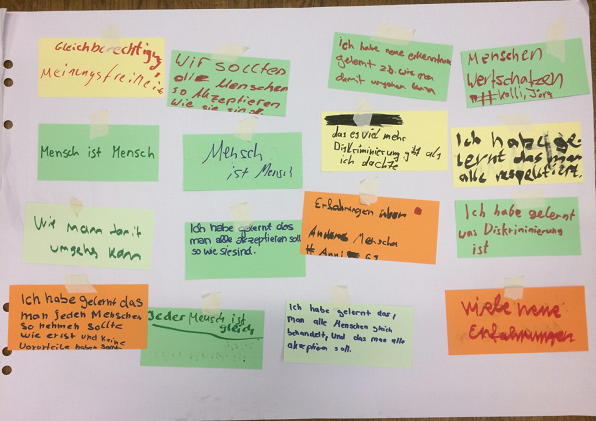 Gleichberechtigung
Meinungsfreiheit
Wir sollten
die Menschen
so Akzeptieren
wie sie sind.
ich habe neue erkenntnisse
gelernt z.b. wie man
damit umgehen kann
Menschen
Wertschätzen
Kolli, Jörg
Mensch ist Mensch
Mensch
ist Mensch
das es viel mehr
Diskriminierung gibt als
ich dachte
Ich habe ge-
lernt das man
alle respektiert.
Wie mann damit
umgehen kann
Ich habe gelernt das
man alle akzeptieren soll
so wie sie sind.
Erfahrungen über
Andere Menschen
Ich habe gelernt
was Diskriminierung
ist
Ich habe gelernt das
man jeden Menschen
so nehmen sollte
wie er ist und keine
Vorurteile haben sollte
Jeder Mensch ist
gleich
Ich habe gelernt das,
man alle Menschen gleich
behandelt, und das man alle
akzeptieren soll.
viele neue
Erfahrungen